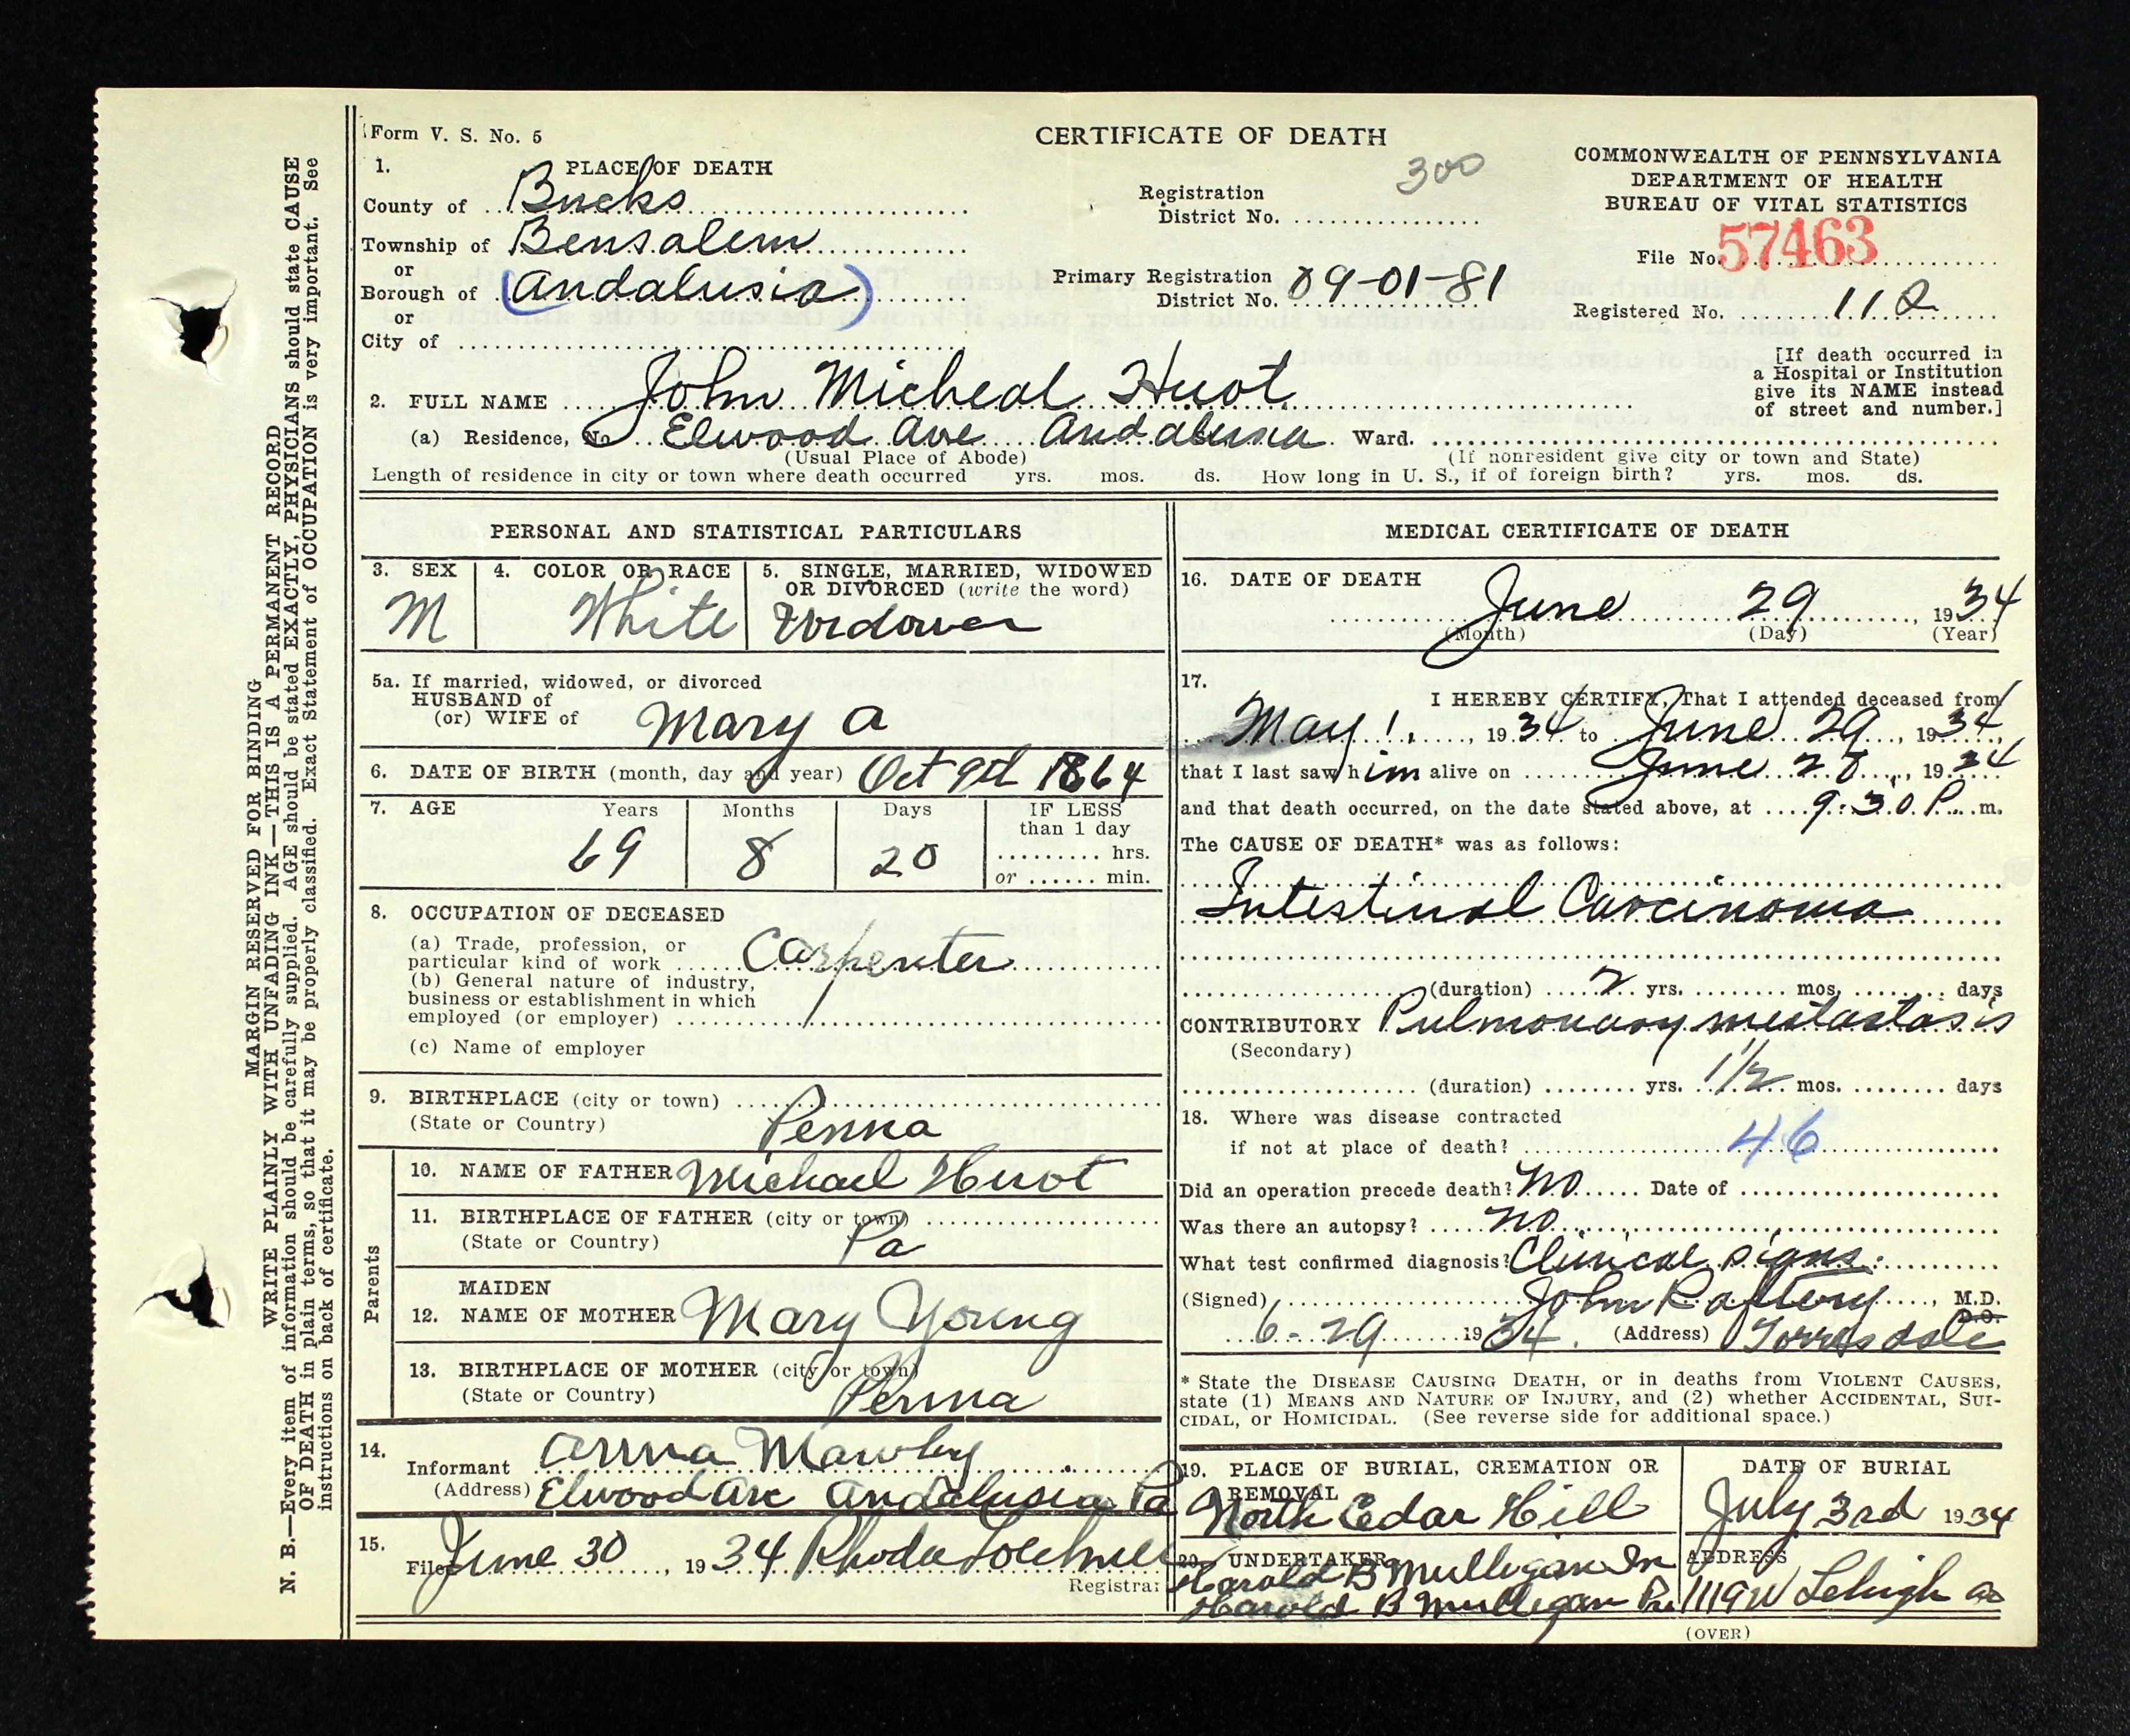 Form V. S. No. 5
CERTIFICATE OF DEATH
COMMONWEALTH OF PENNSYLVANIA
DEPARTMENT OF HEALTH
BUREAU OF VITAL STATISTICS
300
File No. 57463
Registered No. 112
Registration District No.
Primary Registration District No. 09-01-81
1. PLACE OF DEATH
County of Bucks
Township of Bensalem
or
Borough of (Andalusia)
or
City of
[If death occurred in
a Hospital or Institution
give its NAME instead
of street and number.]
2. FULL NAME John Micheal Huot
(a) Residence, No. Elwood Ave Andalusia Ward.
(Usual Place of Abode) (If nonresident give city or town and State)
Length of residence in city or town where death occurred yrs. mos. ds. How long in U. S., if of foreign birth? yrs. mos. ds.
PERSONAL AND STATISTICAL PARTICULARS
3. SEX
M
4. COLOR OR RACE
White
5. SINGLE, MARRIED, WIDOWED
OR DIVORCED (write the word)
Widower
5a. If married, widowed, or divorced
HUSBAND of
(or) WIFE of Mary A
6. DATE OF BIRTH (month, day and year) Oct 9th 1864
7. AGE Years Months Days IF LESS
than 1 day
hrs.
or min.
69 8 20
8. OCCUPATION OF DECEASED
(a) Trade, profession, or
particular kind of work Carpenter
(b) General nature of industry,
business or establishment in which
employed (or employer)
(c) Name of employer
9. BIRTHPLACE (city or town)
(State or Country) Penna
Parents
10. NAME OF FATHER Michael Huot
11. BIRTHPLACE OF FATHER (city or town)
(State or Country) Pa
MAIDEN
12. NAME OF MOTHER Mary Young
13. BIRTHPLACE OF MOTHER (city or town)
(State or Country) Penna
14. Informant Anna Mawby
(Address) Elwood Ave Andalusia Pa
15. Filed June 30, 1934 Rhoda
Registrar
MEDICAL CERTIFICATE OF DEATH
16. DATE OF DEATH
June 29, 1934
(Month) (Day) (Year)
17. I HEREBY CERTIFY, That I attended deceased from
May 1, 1934 to June 29, 1934,
that I last saw him alive on June 28, 1934
and that death occurred, on the date stated above, at 9:30 P. m.
The CAUSE OF DEATH* was as follows:
Intestinal Carcinoma
(duration) 2 yrs. mos. days
CONTRIBUTORY Pulmonary metastasis
(Secondary)
(duration) yrs. 1 1/2 mos. days
18. Where was disease contracted
if not at place of death? 46
Did an operation precede death? No Date of
Was there an autopsy? no
What test confirmed diagnosis? Clinical signs.
(Signed) John Raftery, M.D.
D.O.
6-29 1934. (Address) Torresdale
* State the DISEASE CAUSING DEATH, or in deaths from VIOLENT CAUSES,
state (1) MEANS AND NATURE OF INJURY, and (2) whether ACCIDENTAL, SUI-
CIDAL, or HOMICIDAL. (See reverse side for additional space.)
19. PLACE OF BURIAL, CREMATION OR
REMOVAL
North Cedar Hill
DATE OF BURIAL
July 3rd 1934
20. UNDERTAKER
Harold B Mulligan
Harold B Mulligan
ADDRESS
1119 W Lehigh
(OVER)
MARGIN RESERVED FOR BINDING
WRITE PLAINLY WITH UNFADING INK—THIS IS A PERMANENT RECORD
N. B.—Every item of information should be carefully supplied. AGE should be stated EXACTLY, PHYSICIANS should state CAUSE
OF DEATH in plain terms, so that it may be properly classified. Exact Statement of OCCUPATION is very important. See
instructions on back of certificate.